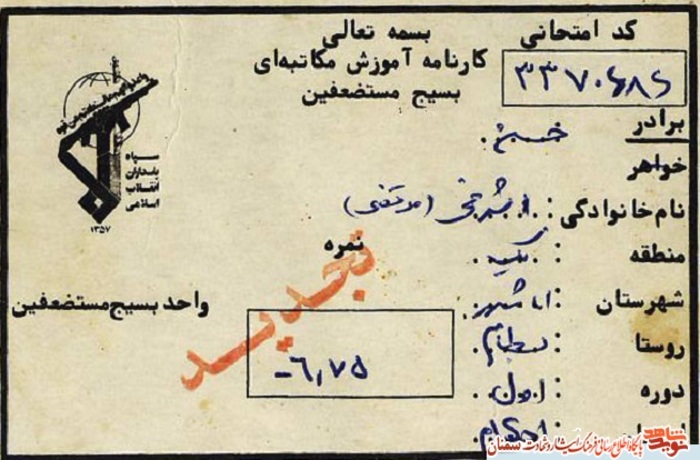 بسمه تعالی
کارنامه آموزش مکاتبه‌ای
بسیج مستضعفین
کد امتحانی
۳۳۷۰۶۸۶
سپاه
پاسداران
انقلاب
اسلامی
۱۳۵۷
برادر حسین
خواهر
نام خانوادگی : اشرفی (مرتضی)
منطقه :
شهرستان :
روستا : بسطام
دوره : اول
احکام
نمره
-۶,۷۵
تجدید
واحد بسیج مستضعفین
نوید شاهد
پایگاه اطلاع رسانی فرهنگ ایثار و شهادت سمنان